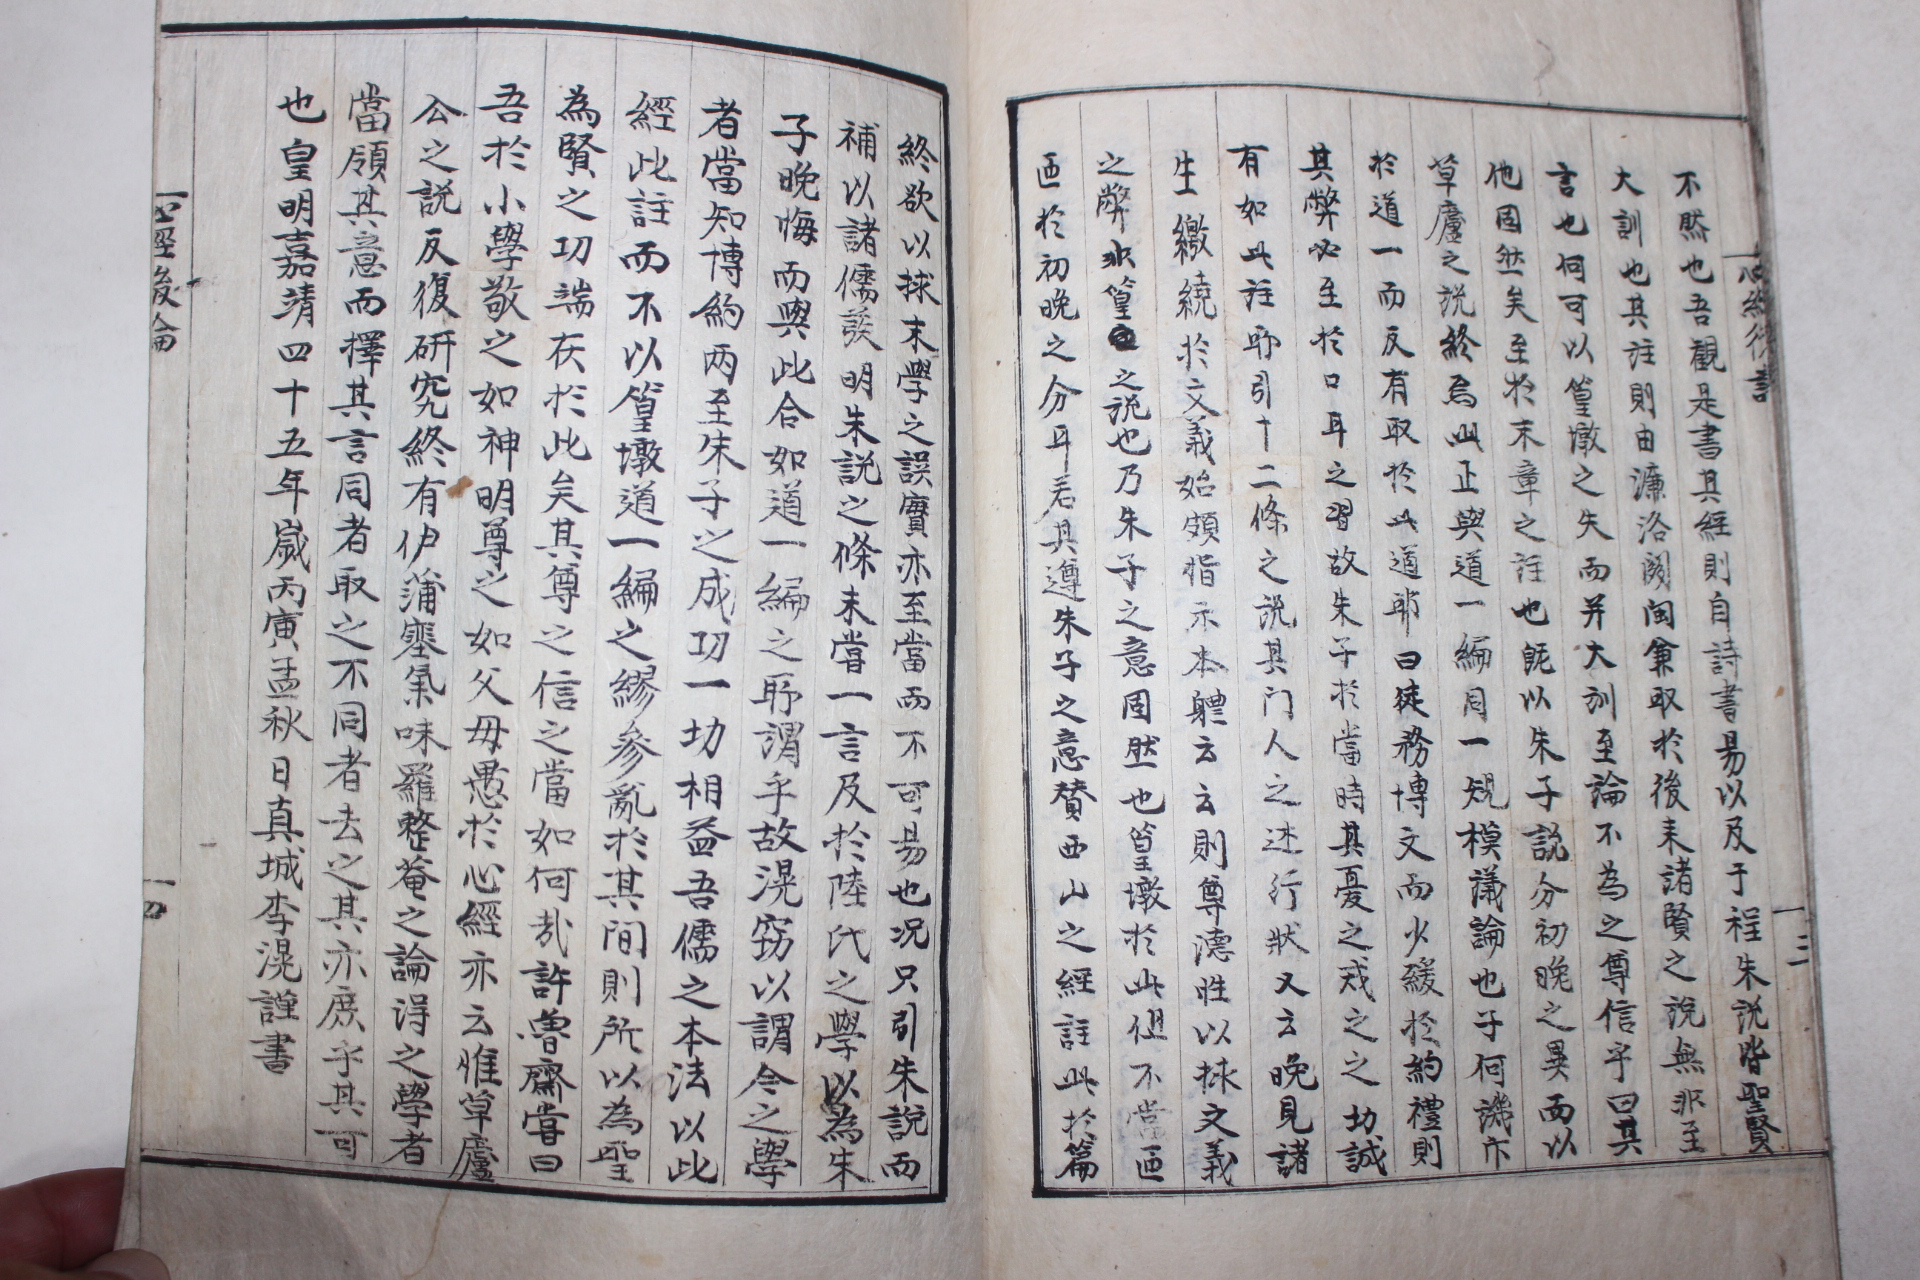 心經後論
三
不然也吾觀是書其經則自詩書易以及于程朱說皆聖賢
大訓也其註則由濂洛關閩兼取於後來諸賢之說無非至
言也何可以篁墩之失而并大訓至論不為之尊信乎曰其
他固然矣至於末章之註也旣以朱子說分初晚之異而以
草廬之說終焉此正與道一編同一規模議論也子何譏於
於道一而反有取於此道耶曰徒務博文而少緩於約禮則
其弊必至於口耳之習故朱子於當時其憂之戒之之切誠
有如此註所引十二條之說其門人之述行狀又云晚見諸
生繳繞於文義始頗指示本軆云云則尊德性以捄文義
之弊非篁墩之說也乃朱子之意固然也篁墩於此但不當區
區於初晚之分耳若其遵朱子之意贊西山之經註此於篇
終欲以捄末學之誤實亦至當而不可易也况只引朱說而
補以諸儒發明朱說之條未嘗一言及於陸氏之學以為朱
子晚悔而與此合如道一編之所謂乎故滉竊以謂今之學
者當知博約兩至朱子之成功一切相益吾儒之本法以此
經此註而不以篁墩道一編之繆參亂於其間則所以為聖
為賢之功端在於此矣其尊之信之當如何哉許魯齋嘗曰
吾於小學敬之如神明尊之如父母愚於心經亦云惟草廬
公之說反復研究終有伊蒲塞氣味羅整菴之論得之學者
當領其意而擇其言同者取之不同者去之其亦庶乎其可
也皇明嘉靖四十五年歲丙寅孟秋日真城李滉謹書
心經後論
四